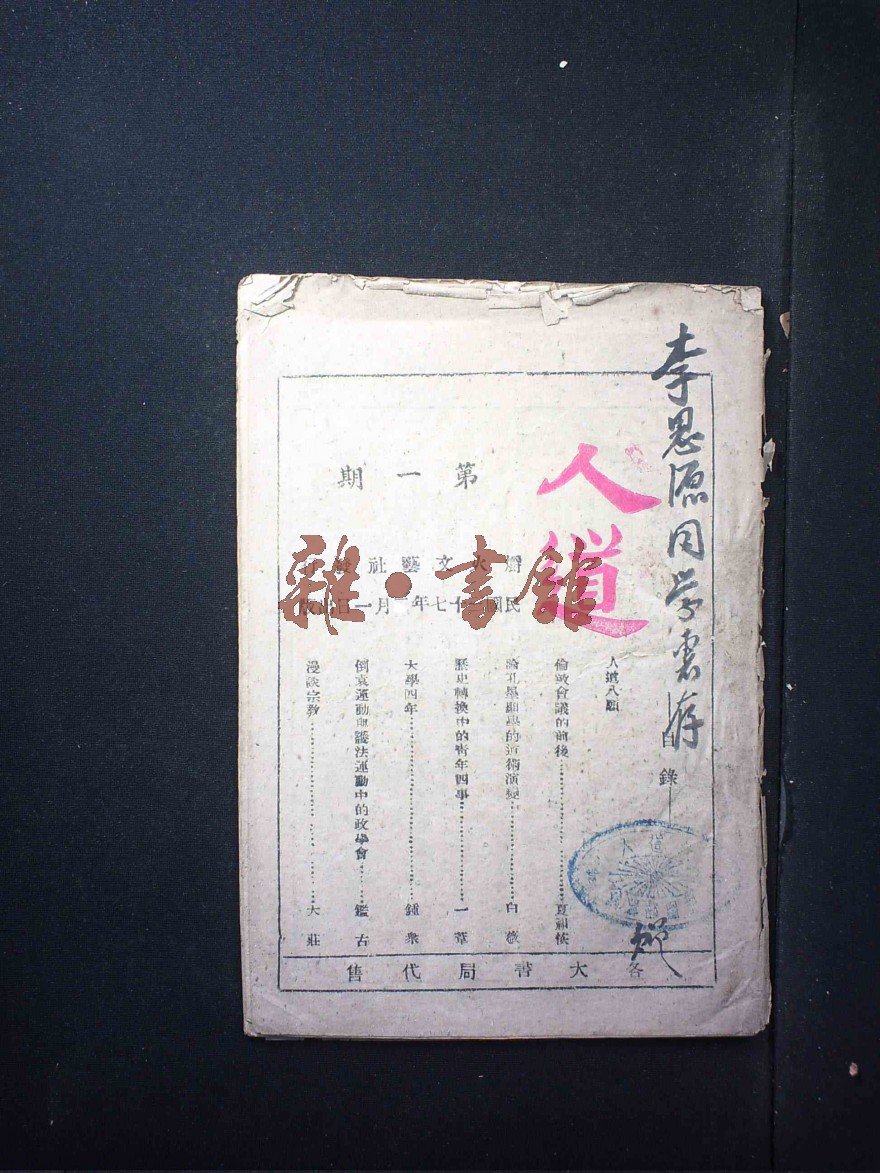 李思源同学惠存
人道
第一期
文藝社
民國 十七年 月一日出版
目錄
人道八願
倫敦會議的前後……夏祖恢
論孔墨顯學的道術演變……白薇
歷史轉換中的青年四事……一葦
大學四年……鍾衆
倒袁運動與護法運動中的政學會……鑑古
漫談宗教……大莊
各大書局代售
人道
雜·書館